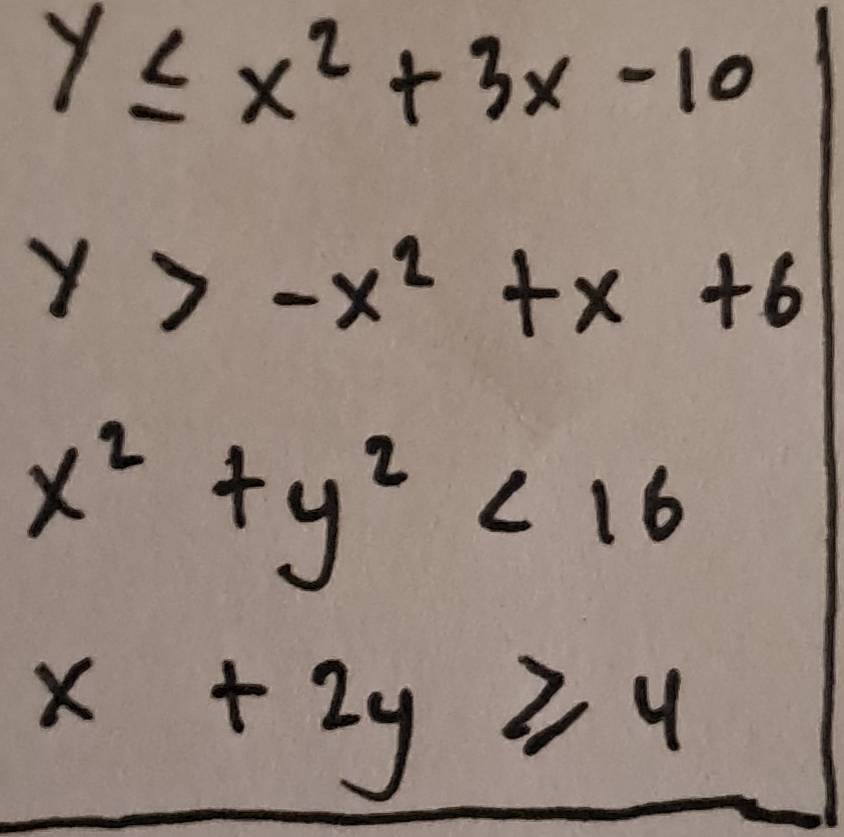 y ≤ x² + 3x - 10
y > -x² + x + 6
x² + y² < 16
x + 2y ≥ 4